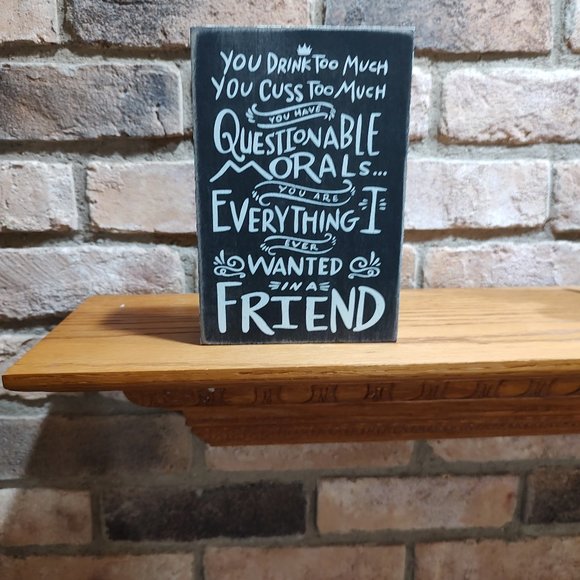 You Drink Too Much
You Cuss Too Much
YOU HAVE
QUESTIONABLE
MORALS...
YOU ARE
EVERYTHING I
EVER
WANTED
IN A
FRIEND